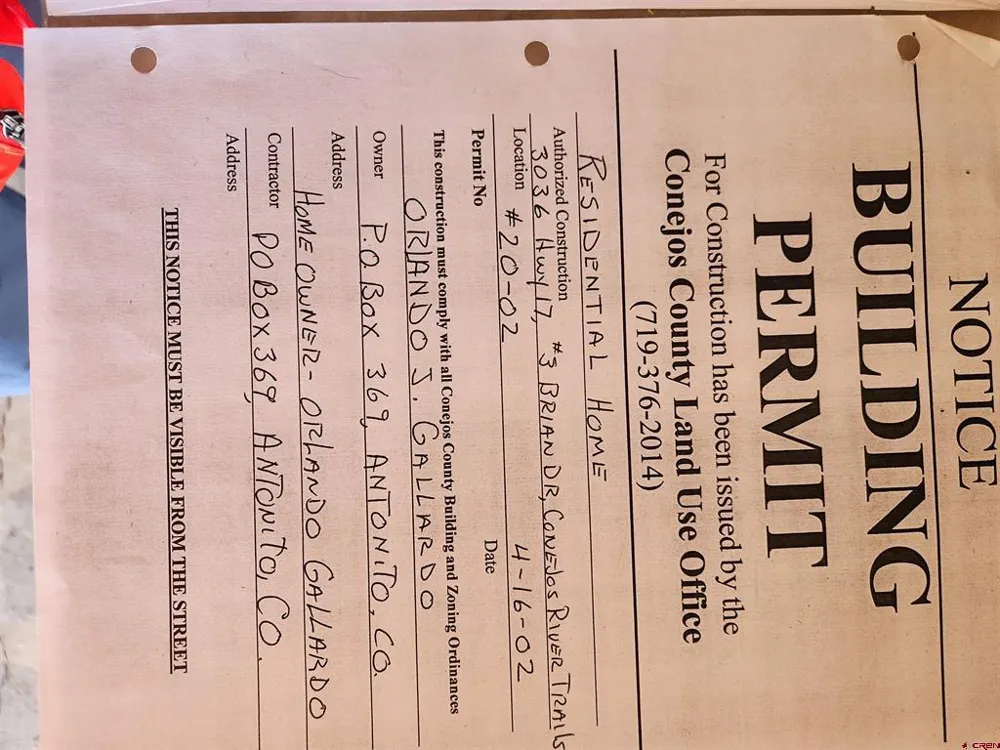 NOTICE
BUILDING
PERMIT
For Construction has been issued by the
Conejos County Land Use Office
(719-376-2014)
RESIDENTIAL HOME
Authorized Construction
3036 Hwy 17, #3 BRIAN DR, CONEJOS RIVER TRAILS
Location
#20-02 4-16-02
Permit No Date
This construction must comply with all Conejos County Building and Zoning Ordinances
ORLANDO J. GALLARDO
Owner
P.O BOX 369, ANTONITO, CO.
Address
HOME OWNER- ORLANDO GALLARDO
Contractor
PO BOX 369, ANTONITO, CO.
Address
THIS NOTICE MUST BE VISIBLE FROM THE STREET
CREN